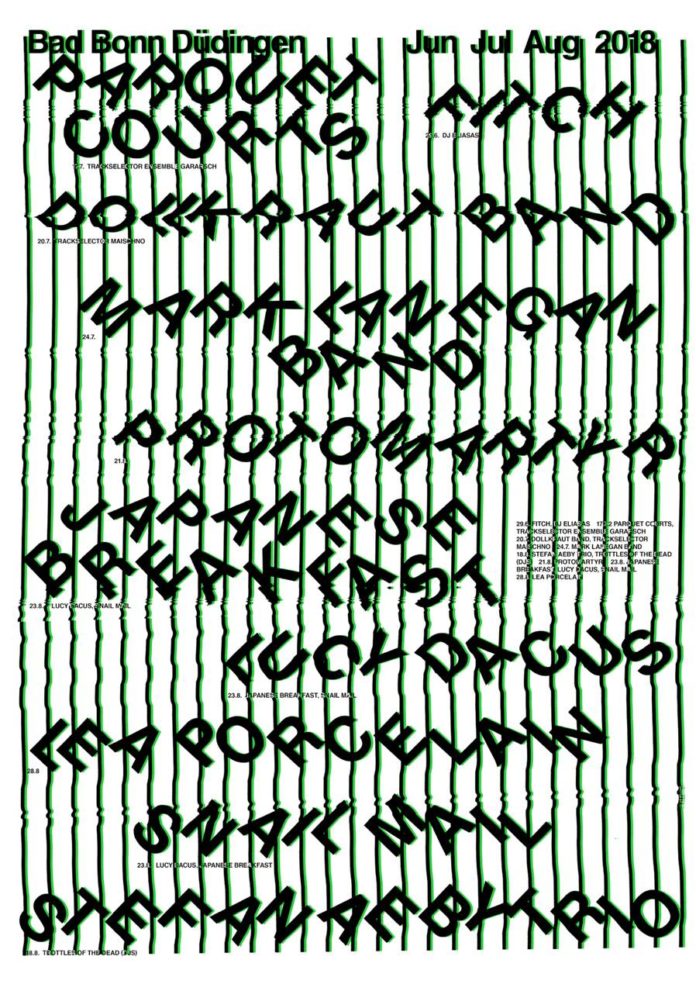 Bad Bonn Düdingen Jun Jul Aug 2018
PARQUET
COURTS
17.7. TRACKSELECTOR ENSEMBLE GARAESCH
FITCH
29.6. DJ ELIASAS
DOLLKRAUT BAND
20.7. TRACKSELECTOR MAISCHNO
MARK LANEGAN
BAND
24.7.
PROTOMARTYR
21.8.
JAPANESE
BREAKFAST
23.8. LUCY DACUS, SNAIL MAIL
29.6. FITCH, DJ ELIASAS 17.7. PARQUET COURTS,
TRACKSELECTOR ENSEMBLE GARAESCH
20.7. DOLLKRAUT BAND, TRACKSELECTOR
MAISCHNO 24.7. MARK LANEGAN BAND
18.8. STEFAN AEBY TRIO, TROTTLES OF THE DEAD
(DJS) 21.8. PROTOMARTYR 23.8. JAPANESE
BREAKFAST, LUCY DACUS, SNAIL MAIL
28.8. LEA PORCELAIN
LUCY DACUS
23.8. JAPANESE BREAKFAST, SNAIL MAIL
LEA PORCELAIN
28.8
SNAIL MAIL
23.8. LUCY DACUS, JAPANESE BREAKFAST
STEFAN AEBY TRIO
18.8. TROTTLES OF THE DEAD (DJS)